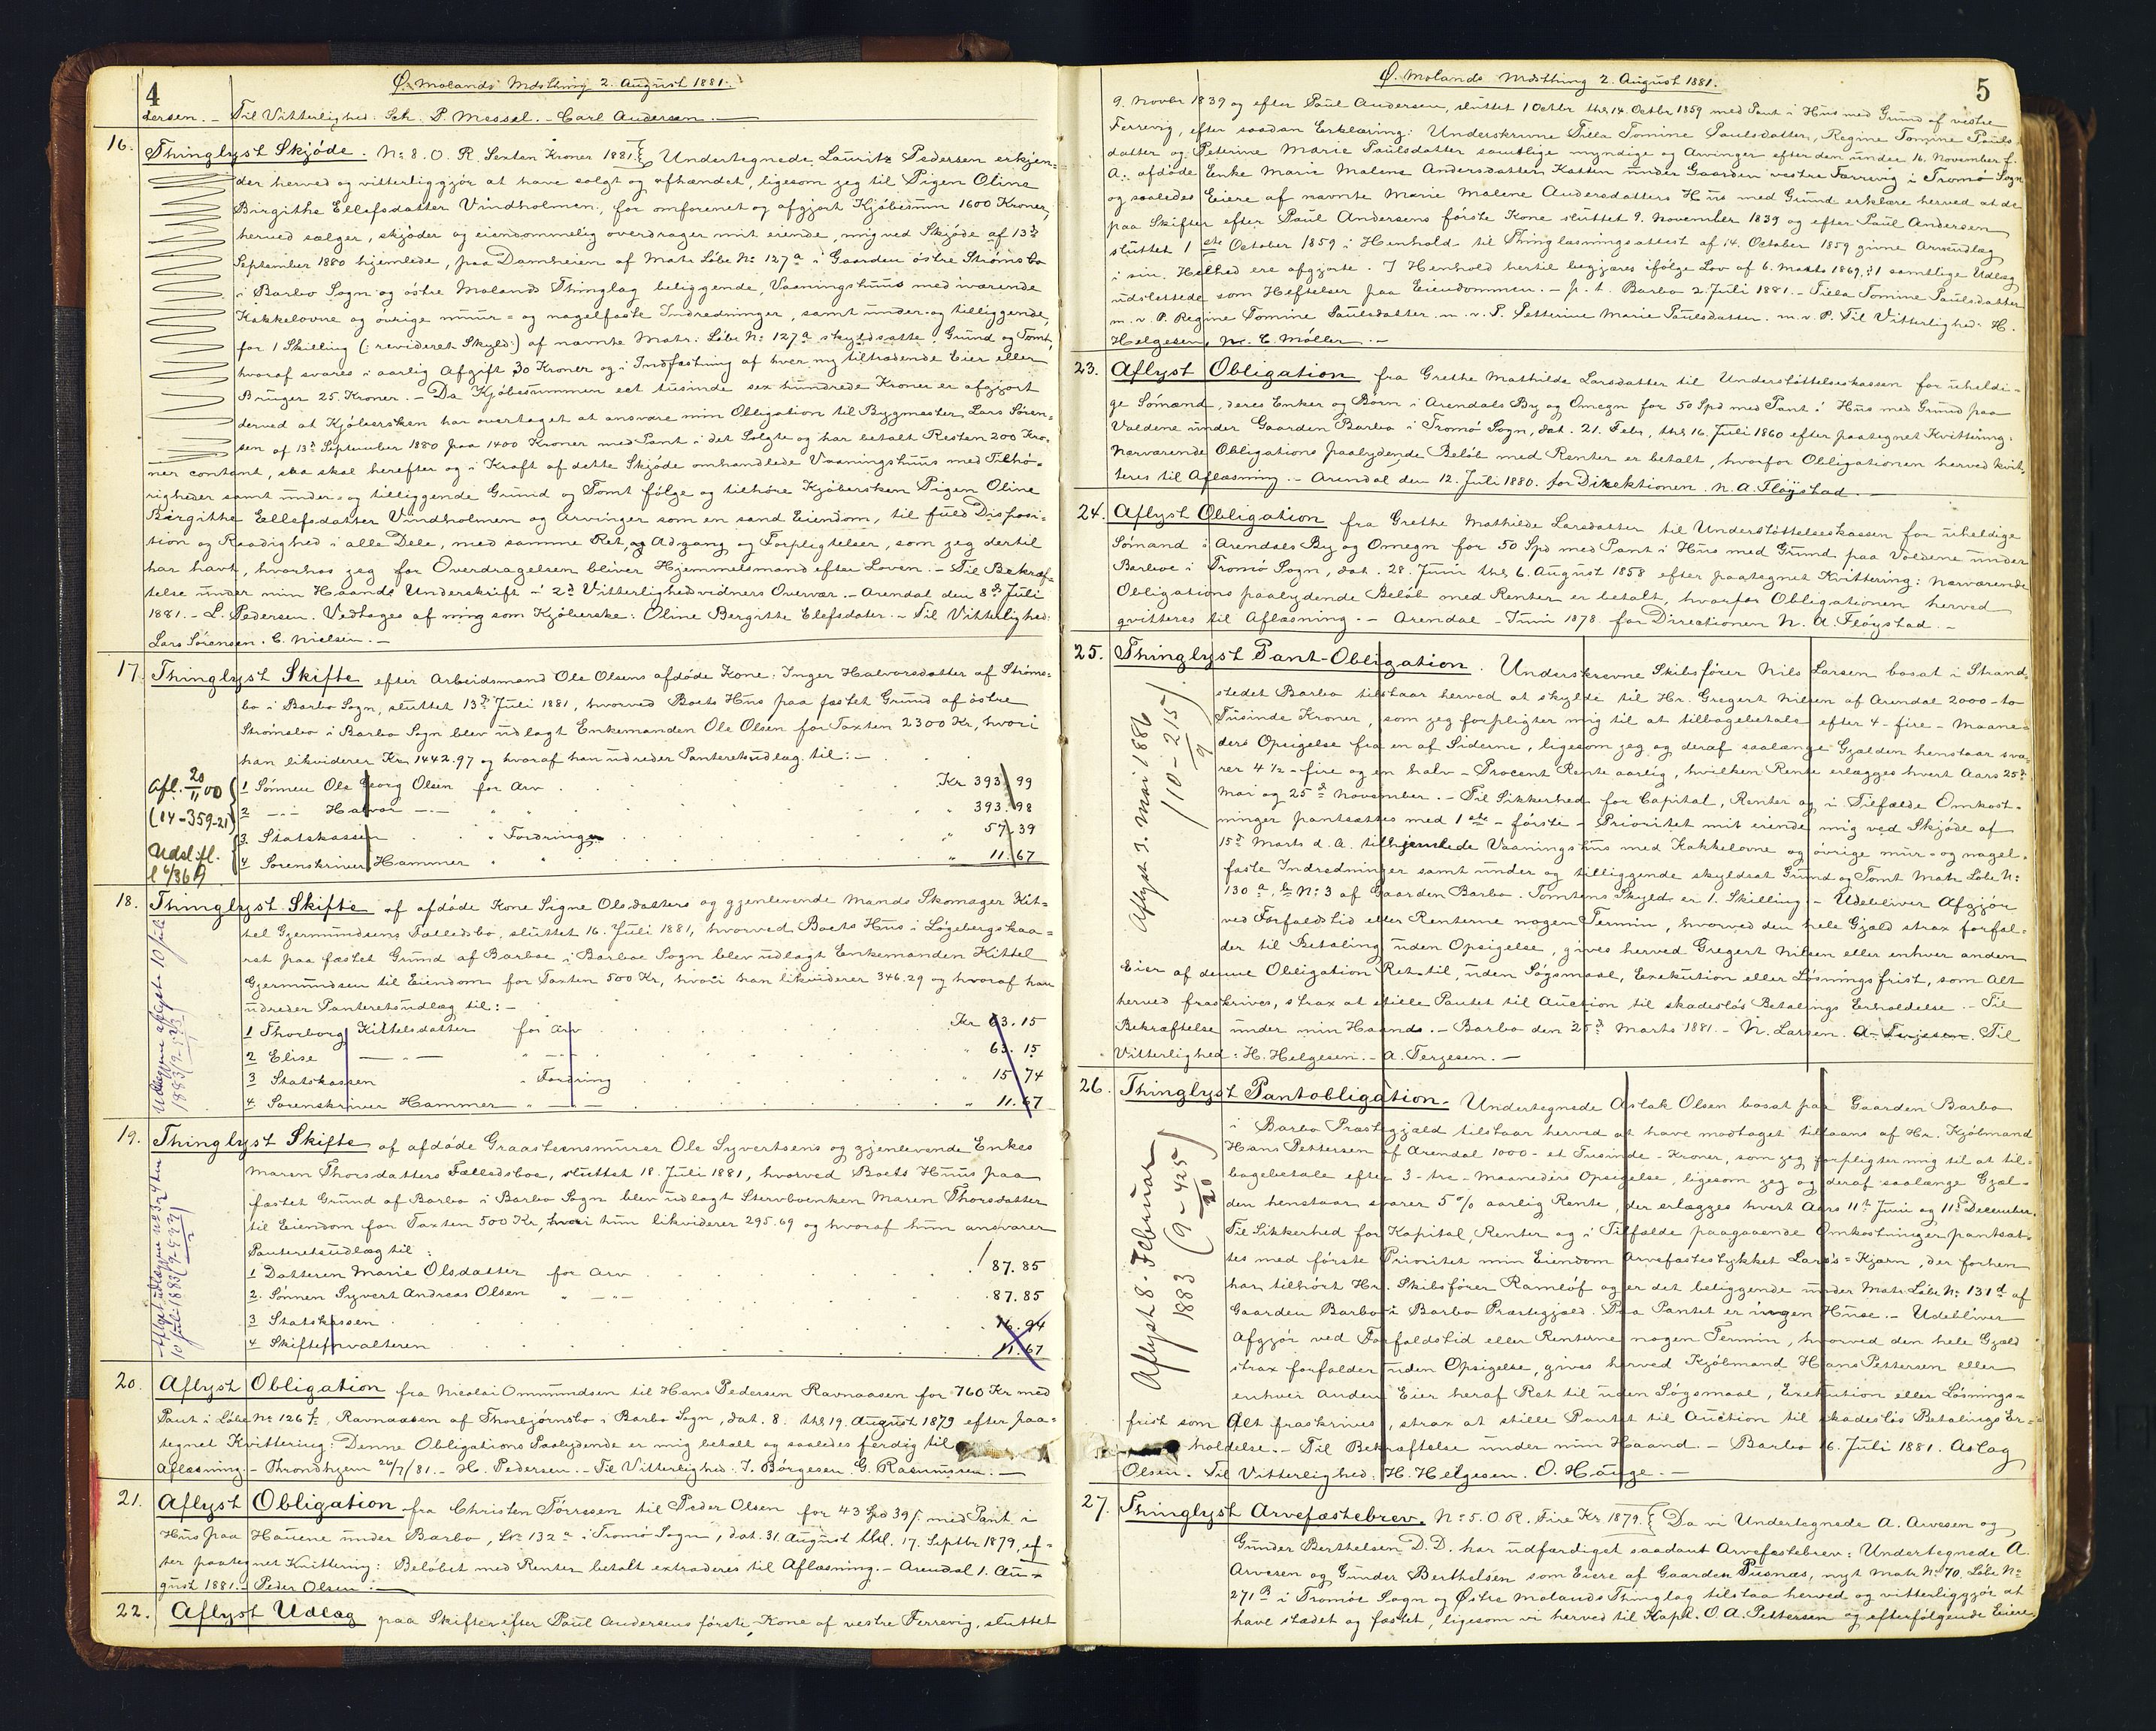 4
Ø. Molands Mdsthing 2. August 1881.
dersen. – Til Vitterlighed: Sch. P. Messel. – Carl Andersen. –
16. Thinglyst Skjöde. No 8. O. R. Sexten Kroner 1881. Undertegnede Lauritz Pedersen erkjen=
der herved og vitterliggjör at have solgt og afhændet, ligesom jeg til Pigen Oline
Birgithe Ellefsdatter Vindholmen, for omforenet og afgjort Kjöbesum 1600 Kroner,
herved sælger, skjöder og eiendommelig overdrager mit eiende, mig ved Skjöde af 13de
September 1880 hjemlede, paa Damheien af Matr. Löbe No 127a i Gaarden östre Strömsbo
i Barbo Sogn og östre Molands Thinglag beliggende, Vaaningshuus med iværende
Kakkelovne og övrige muur= og nagelfaste Indredninger, samt under- og tilliggende,
for 1 Skilling (: revideret Skyld:) af nævnte Matr. Löbe No 127a skyldsatte Grund og Tomt,
hvoraf svares i aarlig Afgift 30 Kroner og i Indfæstning af hver ny tiltrædende Eier eller
Bruger 25 Kroner. – Da Kjöbesummen eet tusinde sex hundrede Kroner er afgjort
derved at Kjöbersken har overtaget at ansvare min Obligation til Bygmester Lars Sören=
sen af 13de September 1880 paa 1400 Kroner med Pant i det Solgte og har betalt Resten 200 Kro=
ner contant, saa skal herefter og i Kraft af dette Skjöde omhandlede Vaaningshuus med Tilhö=
righeder samt under- og tilliggende Grund og Tomt fölge og tilhöre Kjöbersken Pigen Oline
Birgithe Ellefsdatter Vindholmen og Arvinger som en sand Eiendom, til fuld Disposi=
tion og Raadighed i alle Dele, med samme Ret, og Adgang og Forpligtelser, som jeg dertil
har havt, hvorhos jeg for Overdragelsen bliver Hjemmelsmand efter Loven. – Til Bekræf=
telse under min Haands Underskrift i 2de Vitterlighedsvidners Overvær. – Arendal den 8de Juli
1881. – L. Pedersen. Vedtages af mig som Kjöberske: Oline Bergitte Elefsdater. – Til Vitterlighed:
Lars Sörensen. C. Nielsen. –
17. Thinglyst Skifte efter Arbeidsmand Ole Olsens afdöde Kone: Inger Halvorsdatter af Ströms=
bo i Barbo Sogn, sluttet 13de Juli 1881, hvorved Boets Hus paa fæstet Grund af östre
Strömsbo i Barbo Sogn blev udlagt Enkemanden Ole Olsen for Taxten 2300 Kr, hvori
han likviderer Kr. 1442.97 og hvoraf han udreder Panteretsudlæg til: –
Afl. 20/11 00
(14-359-21)
1 Sönnen Ole Georg Olsen for Arv Kr 393.99
2 – " – Halvor – " – " " 393.98
3. Statskassen " Fordringer " 57.39
4. Sorenskriver Hammer " " " 11.67
Udsl. fl.
18. Thinglyst Skifte af afdöde Kone Signe Olsdatters og gjenlevende Mands Skomager Kit=
tel Gjermundsens Fælledsbo, sluttet 16. Juli 1881, hvorved Boets Hus i Lögebergskaa=
ret paa fæstet Grund af Barboe i Barboe Sogn blev udlagt Enkemanden Kittel
Gjermundsen til Eiendom for Taxten 500 Kr, hvori han likviderer 346.29 og hvoraf han
udreder Panteretsudlæg til: –
1 Thorborg Kittelsdatter for Arv Kr 63.15
2 Elise – " – " – " – " 63.15
3 Statskassen " Fordring " 15.74
4. Sorenskriver Hammer " – " – " 11.67
Udlæggene aflyste 10 Juli
19. Thinglyst Skifte af afdöde Graasteensmurer Ole Syvertsens og gjenlevende Enkes
Maren Thorsdatters Fælledsboe, sluttet 18. Juli 1881, hvorved Boets Huus paa
fæstet Grund af Barbo i Barbo Sogn blev udlagt Stervboenken Maren Thorsdatter
til Eiendom for Taxten 500 Kr, hvori hun likviderer 295.69 og hvoraf hun ansvarer
Panteretsudlæg til:
1 Datteren Marie Olsdatter for Arv 87.85
2. Sönnen Syvert Andreas Olsen " – " – 87.85
3 Statskassen 16.94
4 Skifteforvalteren 11.67
20. Aflyst Obligation fra Nicolai Omundsen til Hans Pedersen Ravnaasen for 760 Kr med
Pant i Löbe No 126 f, Ravnaasen af Thorbjörnsbo i Barbo Sogn, dat. 8. thl 19. August 1879 efter paa=
tegnet Kvittering: Denne Obligations Paalydende er mig betalt og saaledes færdig til
Aflæsning. – Throndhjem 26/7/81. – H. Pedersen. – Til Vitterlighed: J. Börgesen. G. Rasmussen. –
21. Aflyst Obligation fra Christen Törresen til Peder Olsen for 43 Spd 39 s med Pant i
Hus paa Hauene under Barbo, Lno 132a i Tromö Sogn, dat. 31. August thl. 17. Septbr 1879, ef=
ter paategnet Kvittering: Belöbet med Renter betalt extraderes til Aflæsning. – Arendal 1. Au=
gust 1881. Peder Olsen: –
22. Aflyst Udlæg paa Skifter efter Paul Andersens förste Kone af vestre Færrevig, sluttet
5
Ø. Molands Mdsthing 2. August 1881.
9. Novbr 1839 og efter Paul Andersen, sluttet 1 Octbr thl 14. Octbr 1859 med Pant i Hus med Grund af vestre
Færrevig, efter saadan Erklæring: Underskrevne Tilla Tomine Paulsdatter, Regine Tomine Pauls=
datter og Peterine Marie Paulsdatter samtlige myndige og Arvinger efter den under 16. November f.
A. afdöde Enke Marie Malene Andersdatter Kaften under Gaarden vestre Færrevig i Tromö Sogn
og saaledes Eiere af nævnte Marie Malene Andersdatters Hus med Grund erklære herved at de
paa Skifter efter Paul Andersens förste Kone sluttet 9. November 1839 og efter Paul Andersen
sluttet 1ste October 1859 i Henhold til Thinglæsningsattest af 14. October 1859 givne Arveudlæg
i sin Helhed ere afgjorte. I Henhold hertil begjæres ifölge Lov af 6. Marts 1869, § 1 samtlige Udlæg
udslettede som Heftelser paa Eiendommen. – p. t. Barbo 2. Juli 1881. – Tilla Tomine Paulsdatter
m. v. P. Regine Tomine Paulsdatter. m. v. P. Petterine Marie Paulsdatter. m. v. P. Til Vitterlighed: H.
Helgesen, M. C. Möller. –
23. Aflyst Obligation fra Grethe Mathilde Larsdatter til Understöttelseskassen for uheldi=
ge Sömænd, deres Enker og Börn i Arendals By og Omegn for 50 Spd med Pant i Hus med Grund paa
Voldene under Gaarden Barbo i Tromö Sogn, dat. 21. Febr, thl 16. Juli 1860 efter paategnet Kvittering:
Nærværende Obligations paalydende Belöb med Renter er betalt, hvorfor Obligationen herved kvit=
teres til Aflæsning. – Arendal den 12. Juli 1880. for Direktionen. N. A. Flöystad. –
24. Aflyst Obligation fra Grethe Mathilde Larsdatter til Understöttelseskassen for uheldige
Sömænd i Arendals By og Omegn for 50 Spd med Pant i Hus med Grund paa Voldene under
Barboe i Tromö Sogn, dat. 28. Juni thl 6. August 1858 efter paategnet Kvittering: Nærværende
Obligations paalydende Belöb med Renter er betalt, hvorfor Obligationen herved
qvitteres til Aflæsning. – Arendal – Juni 1878 for Directionen N. A. Flöystad. –
25. Thinglyst Pant-Obligation. Underskrevne Skibsförer Nils Larsen bosat i Strand=
stedet Barbo tilstaar herved at skylde til Hr. Gregert Nilsen af Arendal 2000 – to
Tusinde Kroner, som jeg forpligter mig til at tilbagebetale efter 4 – fire – Maane=
ders Opsigelse fra en af Siderne, ligesom jeg og deraf saalænge Gjælden henstaar sva=
rer 4½ – fire og en halv – Procent Rente aarlig, hvilken Rente erlægges hvert Aars 25de
Mai og 25de November. – Til Sikkerhed for Capital, Renter og i Tilfælde Omkost=
ninger pantsættes med 1ste – förste – Prioritet mit eiende mig ved Skjöde af
15de Marts d. A. tilhjemlede Vaaningshus med Kakkelovne og övrige mur- og nagel=
faste Indredninger samt under og tilliggende skyldsat Grund og Tomt Matr. Löbe No
130a, b No 3 af Gaarden Barbo. Tomtens Skyld er 1. Skilling. – Udebliver Afgjör
ved Forfaldstid eller Renterne nogen Termin, hvorved den hele Gjæld strax forfal=
der til Betaling uden Opsigelse, gives herved Gregert Nilsen eller enhver anden
Eier af denne Obligation Ret til, uden Sögsmaal, Exekution eller Lösningsfrist, som Alt
herved fraskrives, strax at stille Pantet til Auction til skadeslös Betalings Erholdelse. – Til
Bekræftelse under min Haand. – Barbo den 25de Marts 1881. – N. Larsen. A. Terjesen. Til
Vitterlighed: H. Helgesen. – A. Terjesen. –
Aflyst 3. Mai 1886
(10-215)
9
26. Thinglyst Pantobligation. Undertegnede Aslak Olsen bosat paa Gaarden Barbo
i Barbo Præstegjæld tilstaar herved at have modtaget tillaans af Hr. Kjöbmand
Hans Pettersen af Arendal 1000 – et Tusinde – Kroner, som jeg forpligter mig til at til=
bagebetale efter 3 – tre – Maaneders Opsigelse, ligesom jeg og deraf saalænge Gjæl=
den henstaar svarer 5 % aarlig Rente, der erlægges hvert Aars 11te Juni og 11te December.
Til Sikkerhed for Kapital, Renter og i Tilfælde paagaaende Omkostninger pantsæt=
tes med förste Prioritet min Eiendom Arvefæstestykket Lars's=Kjærn, der forhen
har tilhört Hr. Skibsförer Ramlöf og er det beliggende under Matr. Löbe No 131d af
Gaarden Barbo i Barbo Præstegjæld. Paa Pantet er ingen Huse. – Udebliver
Afgjör ved Forfaldstid eller Renterne nogen Termin, hvorved den hele Gjæld
strax forfalder uden Opsigelse, gives herved Kjöbmand Hans Pettersen eller
enhver Anden Eier heraf Ret til uden Sögsmaal, Exekution eller Lösnings=
frist som Alt fraskrives, strax at stille Pantet til Auction til skadeslös Betalings Er=
holdelse. – Til Bekræftelse under min Haand – Barbo 16. Juli 1881. Aslag
Olsen. Til Vitterlighed: H. Helgesen. O. Hauge. –
Aflyst 8. Februar
1883 (9-425)
20
27. Thinglyst Arvefæstebrev. No 5. O R. Fire Kr 1879. Da vi Undertegnede A. Arvesen og
Gunder Berthelsen D. D. har udfærdiget saadant Arvefæstebrev: Undertegnede A.
Arvesen og Gunder Berthelsen som Eiere af Gaarden Pusnæs, nyt Matr. No 70. Löbe No
271B i Tromöe Sogn og Østre Molands Thinglag tilstaa herved og vitterliggjör at
have stædet og fæstet, ligesom vi herved til Kapt. O. A. Pettersen og efterfölgende Eiere